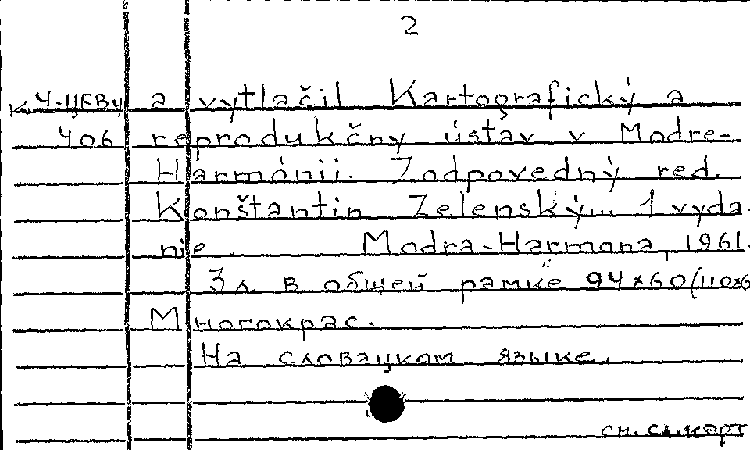 2
к. Ч-ЦЕВЧ a vytlačil Kartografický a
406 reprodukčny ústav v Modre-
Harmónii. Zodpovedný red.
Konštantin Zelenský... 1 vyda
nie. Modra-Harmona, 1961.
3 л. в общей рамке 94x60(110x6
Многокрас.
На словацком языке.
см. сл. карт